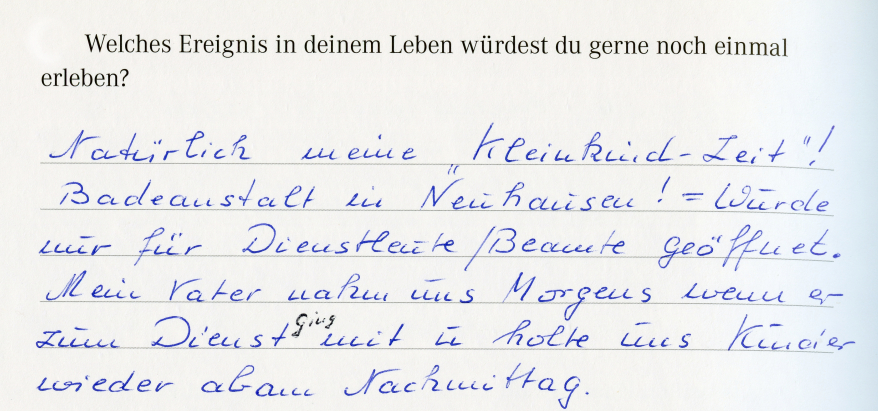 Welches Ereignis in deinem Leben würdest du gerne noch einmal
erleben?
Natürlich meine „Kleinkind-Zeit"!
Badeanstalt in Neuhausen! = Wurde
nur für Dienstleute/Beamte geöffnet.
Mein Vater nahm uns Morgens wenn er
zum Dienst ging mit u holte uns Kinder
wieder ab am Nachmittag.